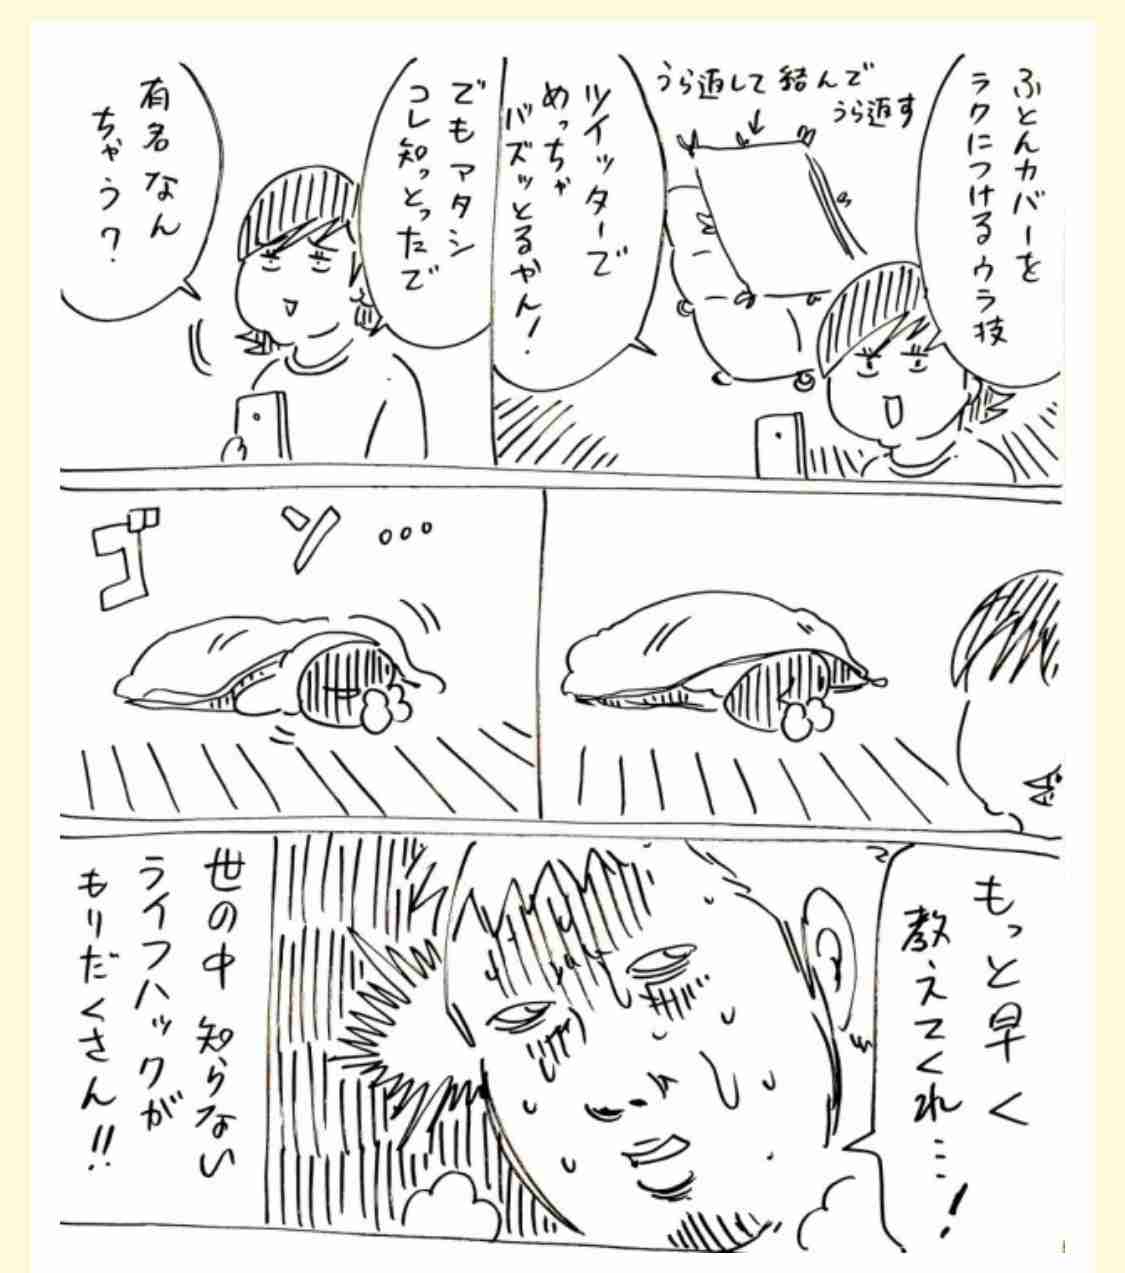 ふとんカバーを
ラクにつけるウラ技
うら返して結んで
うら返す
ツイッターで
めっちゃ
バズッとるやん！
でもアタシ
コレ知っとったで
有名なん
ちゃう？
ゴソ...
もっと早く
教えてくれ…！
世の中知らない
ライフハックが
もりだくさん!!